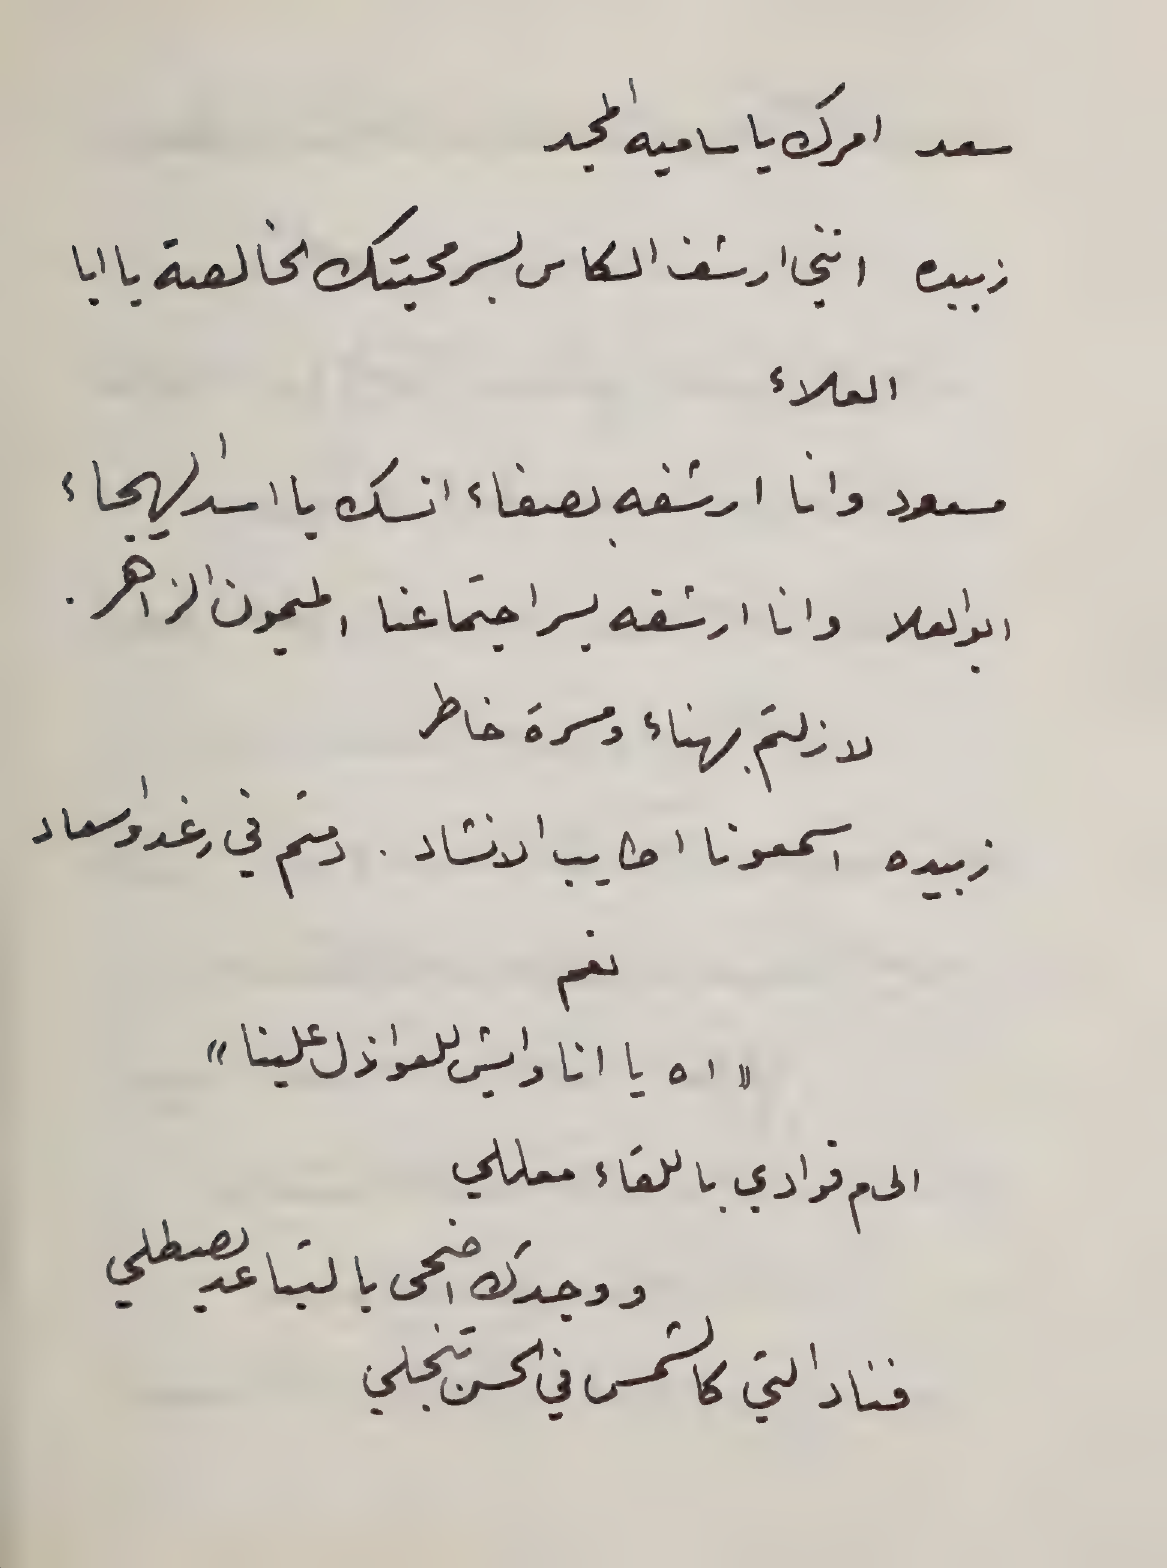 سعد امرك يا سامية المجد
زبيده انني ارشف الكاس بسر محبتك الخالصة يا ابا
العلاء
مسعود وانا ارشفه بصفاء انسك يا اسد الهيجاء
ابو العلا وانا ارشفه بسر اجتماعنا الميمون الزاهر .
لازلتم بهناء ومسرة خاطر
زبيده اسمعونا اطايب الانشاد . دمتم في رغد واسعاد
نغم
« اه يا انا وايش للعواذل علينا »
الى م فوادي باللقاء معللي
ووجدك اضحى بالتباعد يصطلي
فناد التي كالشمس في الحسن تنجلي